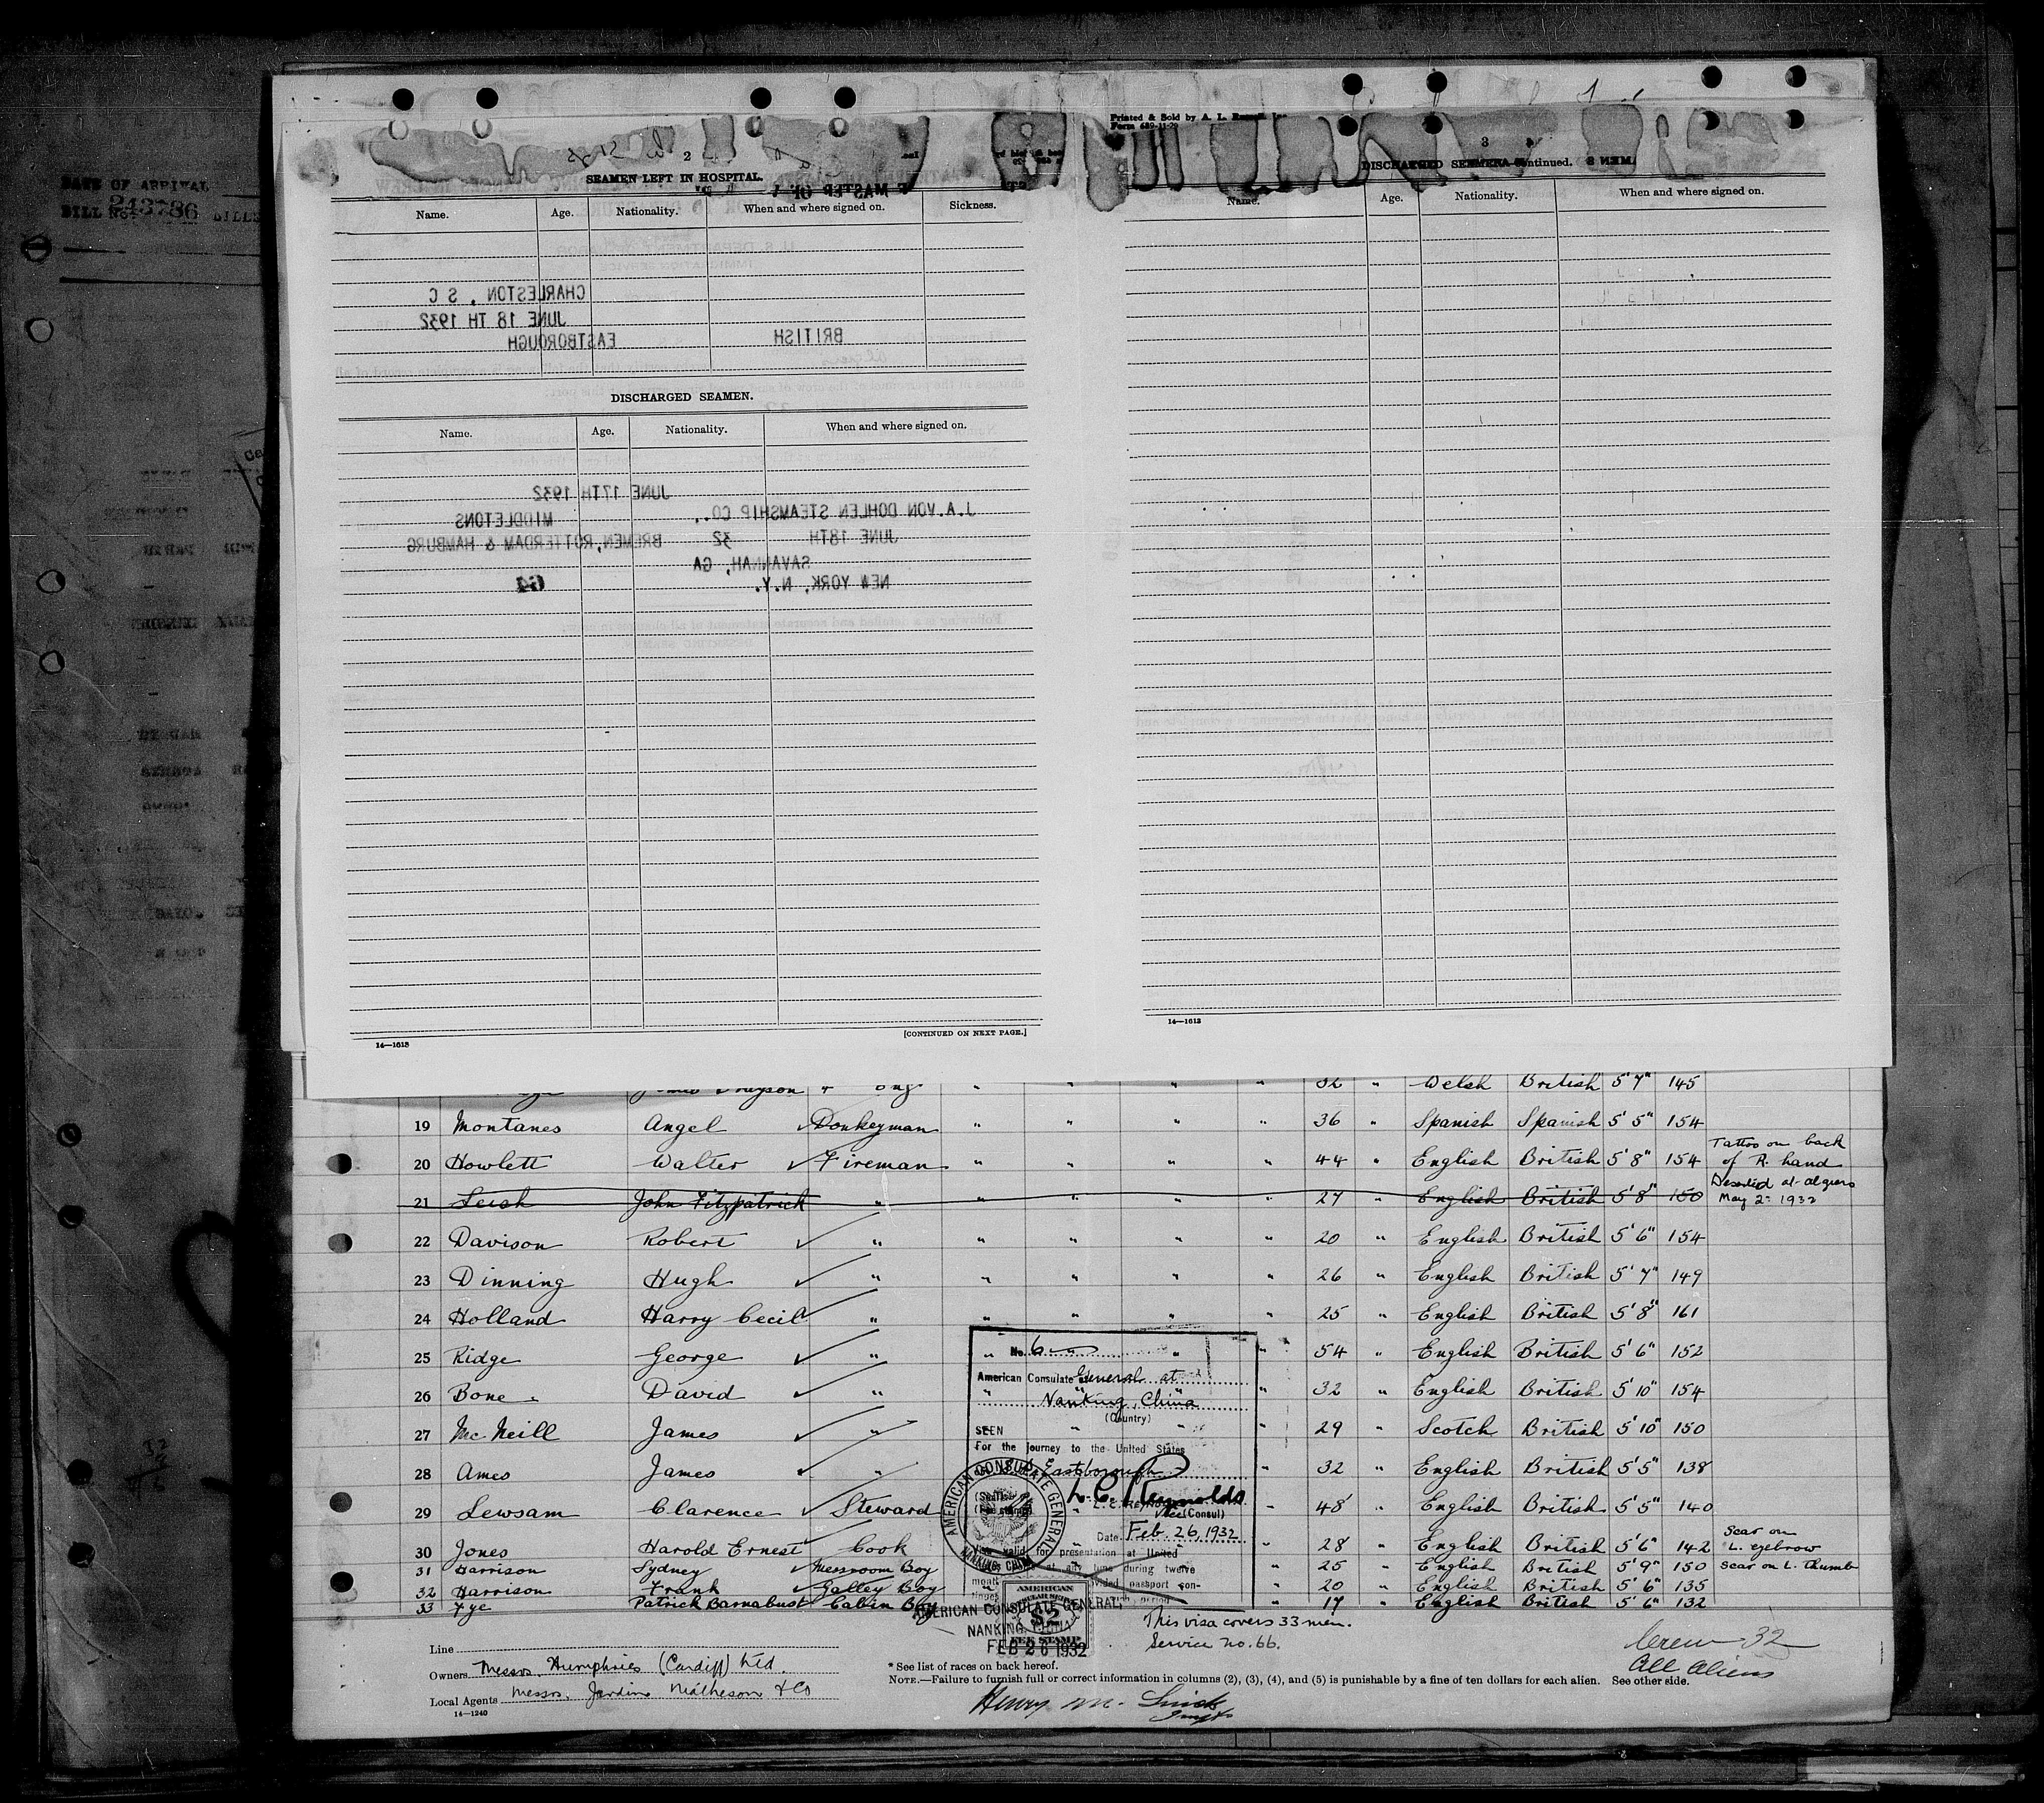 DATE OF ARRIVAL
BILL No. 243786
Printed & Sold by A. L.
Form 689-11-29
2
SEAMEN LEFT IN HOSPITAL.
Name. Age. Nationality. When and where signed on. Sickness.
CHARLESTON, S C
JUNE 18 TH 1932
EASTBOROUGH BRITISH
DISCHARGED SEAMEN.
Name. Age. Nationality. When and where signed on.
JUNE 17TH 1932
J.A.VON DOHLEN STEAMSHIP CO.,
MIDDLETONS
JUNE 18TH 32
BREMEN, ROTTERDAM & HAMBURG
SAVANNAH, GA
NEW YORK, N.Y.
64
[CONTINUED ON NEXT PAGE.]
14—1613
3
DISCHARGED SEAMEN—Continued.
Name. Age. Nationality. When and where signed on.
14—1613
" " " " 32 " Welsh British 5' 7" 145
19 Montanes Angel Donkeyman " " " " 36 " Spanish Spanish 5' 5" 154
20 Howlett Walter Fireman " " " " 44 " English British 5' 8" 154 Tattoo on back of R. hand
21 Leish John Fitzpatrick " " " " " 27 " English British 5' 8" 150 Deserted at Algiers May 2: 1932
22 Davison Robert " " " " " 20 " English British 5' 6" 154
23 Dinning Hugh " " " " " 26 " English British 5' 7" 149
24 Holland Harry Cecil " " " " " 25 " English British 5' 8" 161
25 Ridge George " " " " 54 " English British 5' 6" 152
26 Bone David " " " " 32 " English British 5' 10" 154
27 McNeill James " " " " 29 " Scotch British 5' 10" 150
28 Ames James " " 32 " English British 5' 5" 138
29 Lewsam Clarence Steward " 48 " English British 5' 5" 140
30 Jones Harold Ernest Cook " 28 " English British 5' 6" 142 Scar on L. eyebrow
31 Harrison Sydney Messroom Boy " 25 " English British 5' 9" 150 Scar on L. Thumb
32 Harrison Frank Galley Boy " 20 " English British 5' 6" 135
33 Fye Patrick Barnabust Cabin Boy " 17 " English British 5' 6" 132
No. 60
American Consulate General at
Nanking, China
(Country)
SEEN
For the journey to the United States
Eastborough
L C Reynolds
Vice (Consul)
Date Feb. 26, 1932
valid for presentation at United
at any time during twelve
passport con-
AMERICAN CONSULATE GENERAL
NANKING, CHINA
AMERICAN
$2
FEE STAMP
AMERICAN CONSULATE GENERAL,
NANKING, CHINA
FEB 26 1932
This visa covers 33 men.
Service no. 66.
Crew 32
All aliens
Line
Owners Messrs. Humphries (Cardiff) Ltd.
Local Agents Messrs. Jardine Matheson & Co
14—1240
* See list of races on back hereof.
NOTE.—Failure to furnish full or correct information in columns (2), (3), (4), and (5) is punishable by a fine of ten dollars for each alien. See other side.
Henry M.